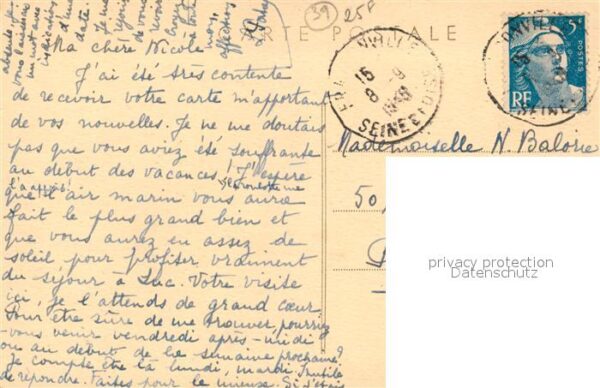 39 25F
CARTE POSTALE
Ma chère Nicole
J'ai été très contente
de recevoir votre carte m'apportant
de vos nouvelles. Je ne me doutais
pas que vous aviez été souffrante
au début des vacances! J'espère
que l'air marin vous aura
fait le plus grand bien et
que vous aurez eu assez de
soleil pour profiter vraiment
du séjour à Luc. Votre visite
ici, je l'attends de grand cœur.
Pour être sûre de me trouver, pourriez
-vous venir vendredi après-midi
ou au début de la semaine prochaine?
Je compte être là lundi, mardi. Inutile
de répondre. Faites pour le mieux. Si j'étais
absente je
vous laisserais
un mot avec
indication
date.
15 - 9
SEINE ET OISE
5F
POSTES
RF
Mademoiselle N. Balorie
50,
privacy protection
Datenschutz